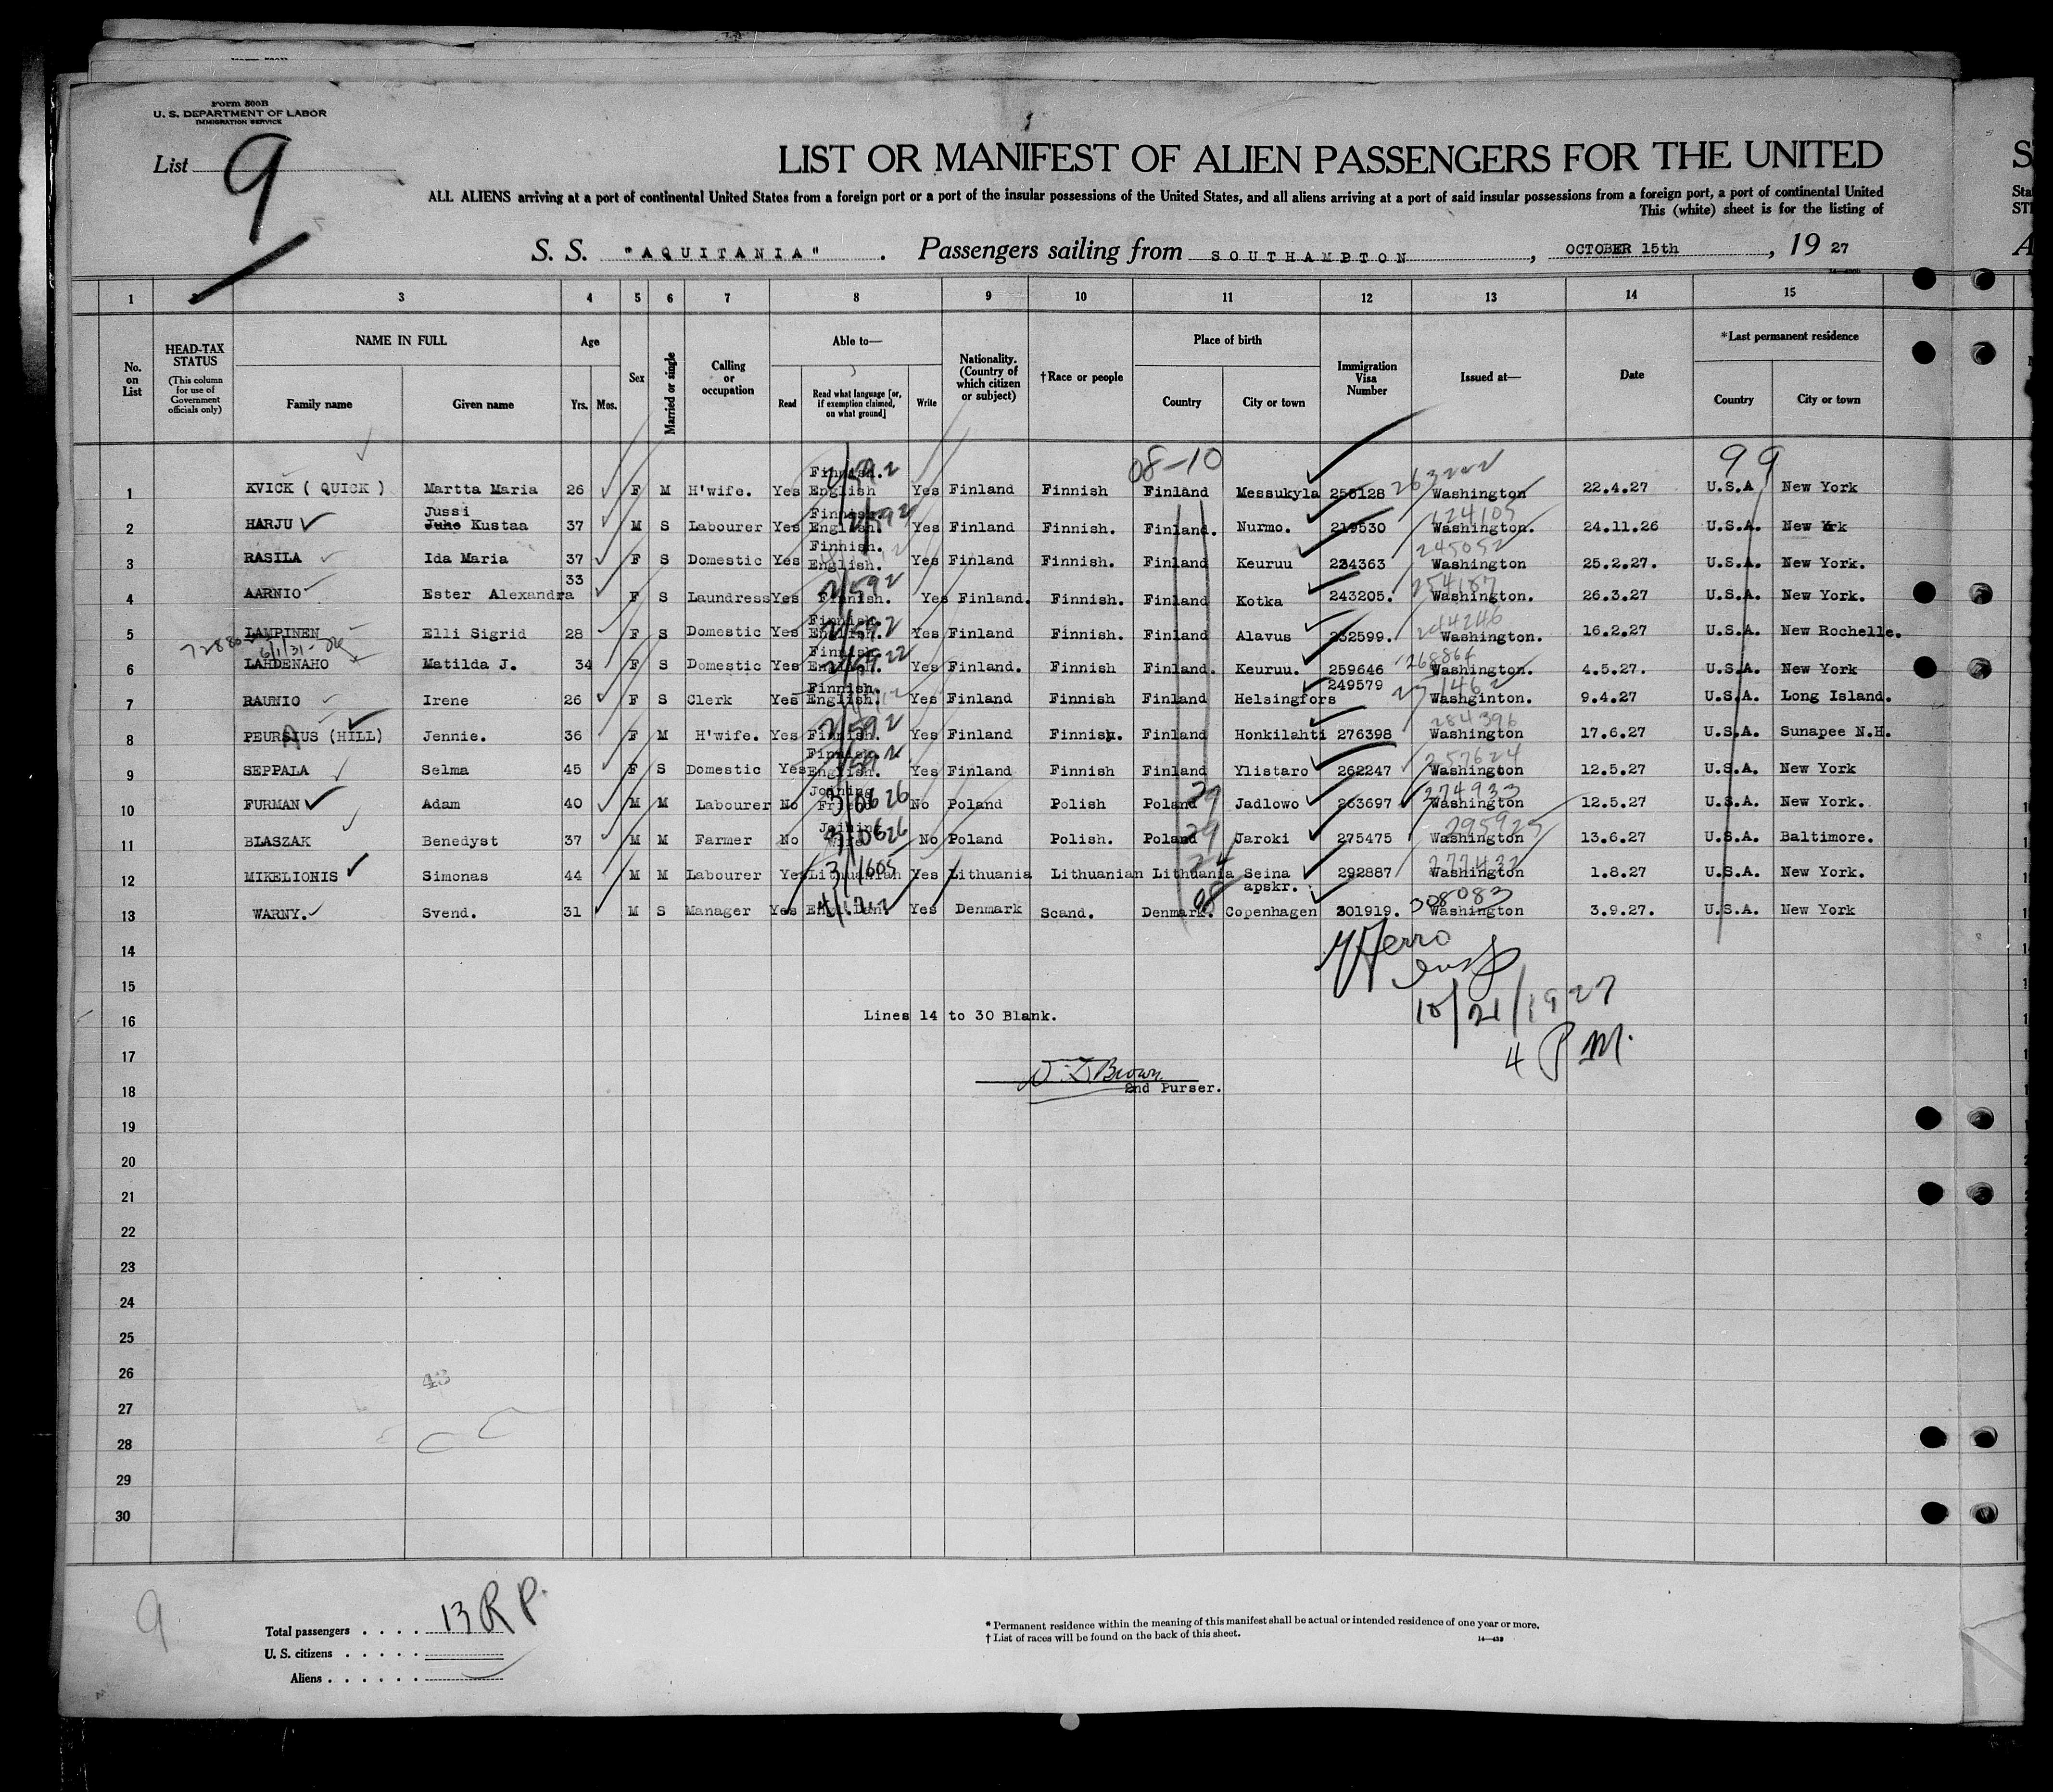 Form 500B
U. S. DEPARTMENT OF LABOR
IMMIGRATION SERVICE
List 9
LIST OR MANIFEST OF ALIEN PASSENGERS FOR THE UNITED
ALL ALIENS arriving at a port of continental United States from a foreign port or a port of the insular possessions of the United States, and all aliens arriving at a port of said insular possessions from a foreign port, a port of continental United
This (white) sheet is for the listing of
S. S. "AQUITANIA". Passengers sailing from SOUTHAMPTON, OCTOBER 15th, 19 27
1 3 4 5 6 7 8 9 10 11 12 13 14 15
No. on List
HEAD-TAX STATUS (This column for use of Government officials only)
NAME IN FULL
Family name Given name
Age
Yrs. Mos.
Sex
Married or single
Calling or occupation
Able to—
Read Read what language [or, if exemption claimed, on what ground] Write
Nationality. (Country of which citizen or subject)
†Race or people
Place of birth
Country City or town
Immigration Visa Number
Issued at—
Date
*Last permanent residence
Country City or town
08-10 99
1 KVICK ( QUICK ) Martta Maria 26 F M H'wife. Yes Finnish. English Yes Finland Finnish Finland Messukyla Washington 22.4.27 U.S.A New York
2 HARJU Jussi Juho Kustaa 37 M S Labourer Yes Finnish. English. Yes Finland Finnish. Finland. Nurmo. 219530 124105 Washington. 24.11.26 U.S.A. New York
3 RASILA Ida Maria 37 F S Domestic Yes Finnish. English. Yes Finland Finnish. Finland Keuruu 234363 245052 Washington 25.2.27. U.S.A. New York.
4 AARNIO Ester Alexandra 33 F S Laundress Yes Finnish. Yes Finland. Finnish. Finland Kotka 243205. 254187 Washington. 26.3.27 U.S.A. New York.
5 LAMPINEN Elli Sigrid 28 F S Domestic Yes Finnish. English. Yes Finland Finnish. Finland Alavus 232599. 244246 Washington. 16.2.27 U.S.A. New Rochelle.
6 LAHDENAHO Matilda J. 34 F S Domestic Yes Finnish. English. Yes Finland. Finnish Finland. Keuruu. 259646 Washington. 4.5.27. U.S.A. New York
7 RAUNIO Irene 26 F S Clerk Yes Finnish. English. Yes Finland Finnish Finland Helsingfors 249579 Washginton. 9.4.27 U.S.A. Long Island.
8 PEURSIUS (HILL) Jennie. 36 F M H'wife. Yes Finnish. Yes Finland Finnish. Finland Honkilahti 276398 284396 Washington 17.6.27 U.S.A. Sunapee N.H.
9 SEPPALA Selma 45 F S Domestic Yes Finnish. English. Yes Finland Finnish Finland Ylistaro 262247 257624 Washington 12.5.27 U.S.A. New York
10 FURMAN Adam 40 M M Labourer No Joining No Poland Polish Poland 29 Jadlowo 263697 274933 Washington 12.5.27 U.S.A. New York.
11 BLASZAK Benedyst 37 M M Farmer No Joining Wife No Poland Polish. Poland 29 Jaroki 275475 Washington 13.6.27 U.S.A. Baltimore.
12 MIKELIONIS Simonas 44 M M Labourer Yes Lithuanian Yes Lithuania Lithuanian Lithuania Seina apskr. 292887 277432 Washington 1.8.27 U.S.A. New York.
13 WARNY. Svend. 31 M S Manager Yes Engl.Dan. Yes Denmark Scand. Denmark. 08 Copenhagen 301919. 308083 Washington 3.9.27. U.S.A. New York
14
15
16 Lines 14 to 30 Blank.
10/21/1927
4 P.M.
17
18
2nd Purser.
19
20
21
22
23
24
25
26
27
28
29
30
9
Total passengers . . . . 13 R P.
U. S. citizens . . . . .
Aliens . . . . . .
* Permanent residence within the meaning of this manifest shall be actual or intended residence of one year or more.
† List of races will be found on the back of this sheet.